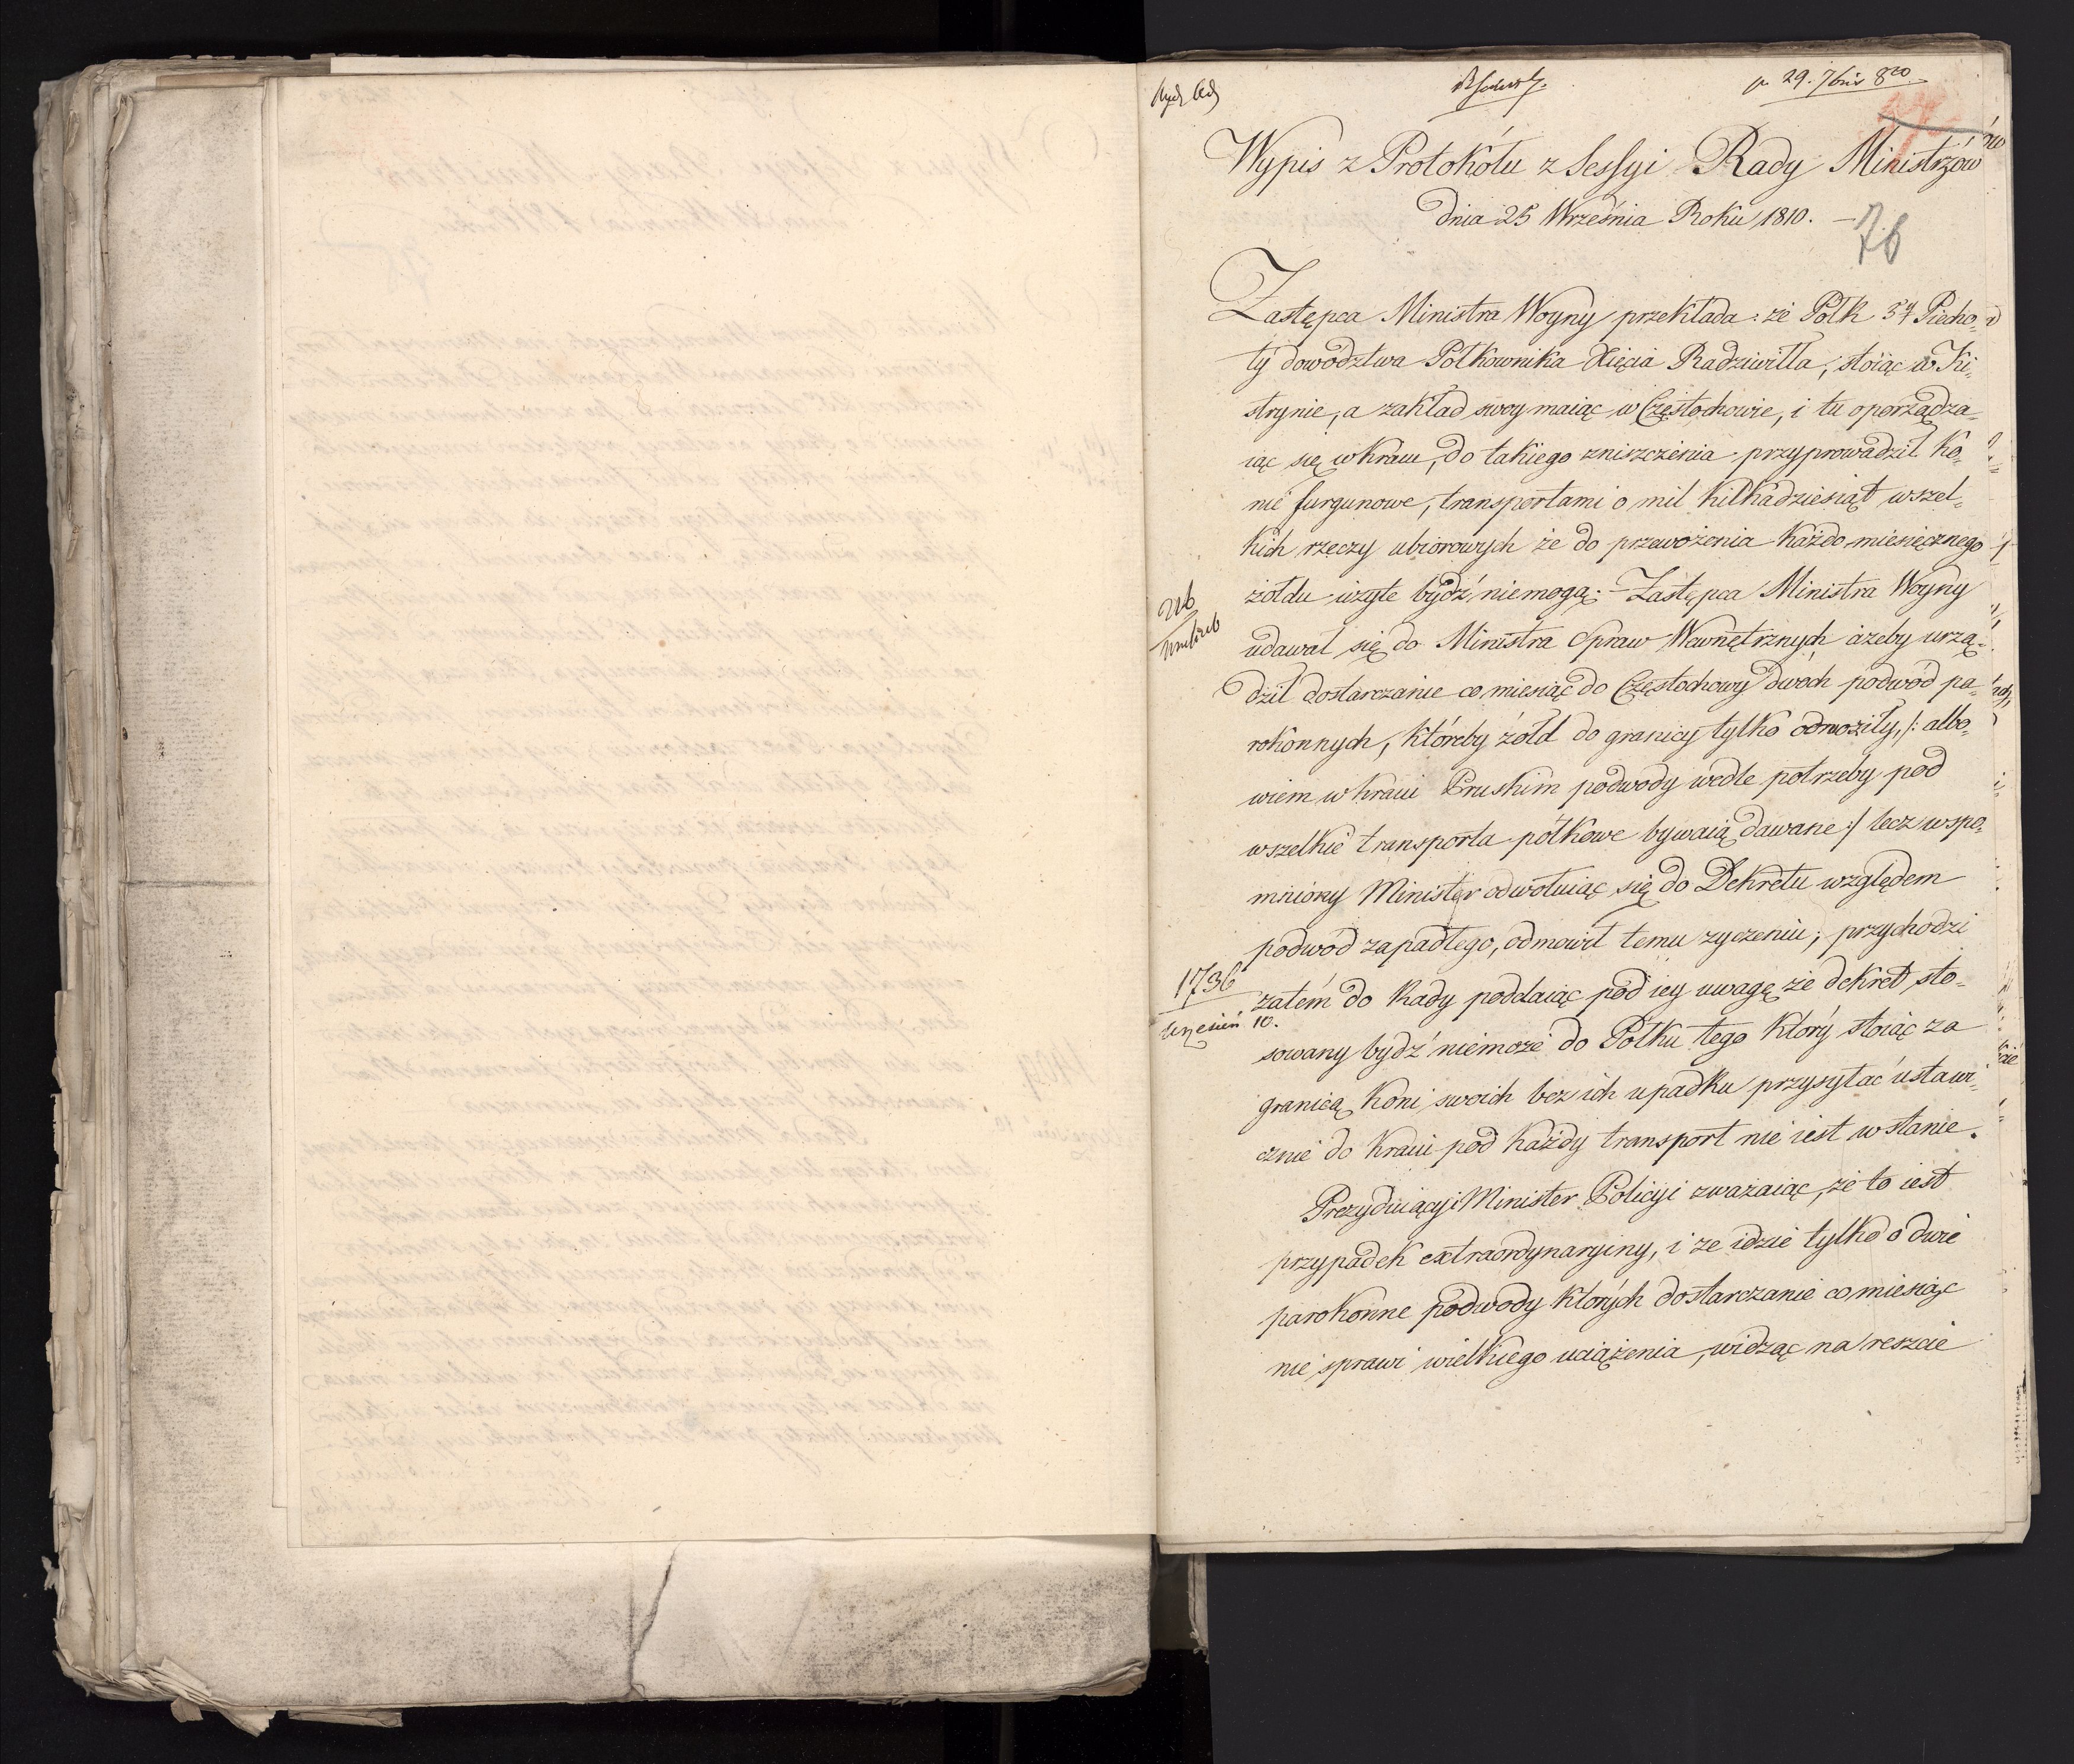 29. 7bris 810
Wypis z Protokółu z Sessyi Rady Ministrzów
dnia 25 Września Roku 1810. –
76
Zastępca Ministra Woyny przekłada: że Pólk 5ty Piecho-
ty dowództwa Półkownika Xięcia Radziwiłła, stoiąc w Ki-
strynie, a zakład swoy maiąc w Częstochowie, i tu oporządza-
iąc się w kraiu, do takiego zniszczenia przyprowadził Ko-
nie furgunowe, transportami o mil kilkadziesiąt wszel-
kich rzeczy ubiorowych że do przewożenia każdo miesięcznego
żołdu użyte bydź niemogą: – Zastępca Ministra Woyny
udawał się do Ministra Spraw Wewnętrznych ażeby urzą-
dził dostarczanie co miesiąc do Częstochowy dwóch podwód pa-
rokonnych, któreby żółd do granicy tylko odwoziły, /: albo-
wiem w kraiu Pruskim podwody wedle potrzeby pod
wszelkie transporta pólkowe bywaią dawane :/ lecz wspo-
mniony Minister odwołuiąc się do Dekretu względem
podwód zapadłego, odmówił temu zyczeniu; przychodzi
1736
wrzesień 10.
zatém do Rady poddaiąc pod iey uwagę że dekret sto-
sowany bydź niemoże do Półku tego który stoiąc za
granicą koni swoich bez ich upadku przysyłać ustawi-
cznie do kraiu pod każdy transport nie iest w stanie.
Prezyduiącyi Minister Policyi zważaiąc, że to iest
przypadek extraordynaryiny, i że idzie tylko o dwie
parokonne podwody których dostarczanie co miesiąc
nie sprawi wielkiego uciążenia, widząc na reszcie